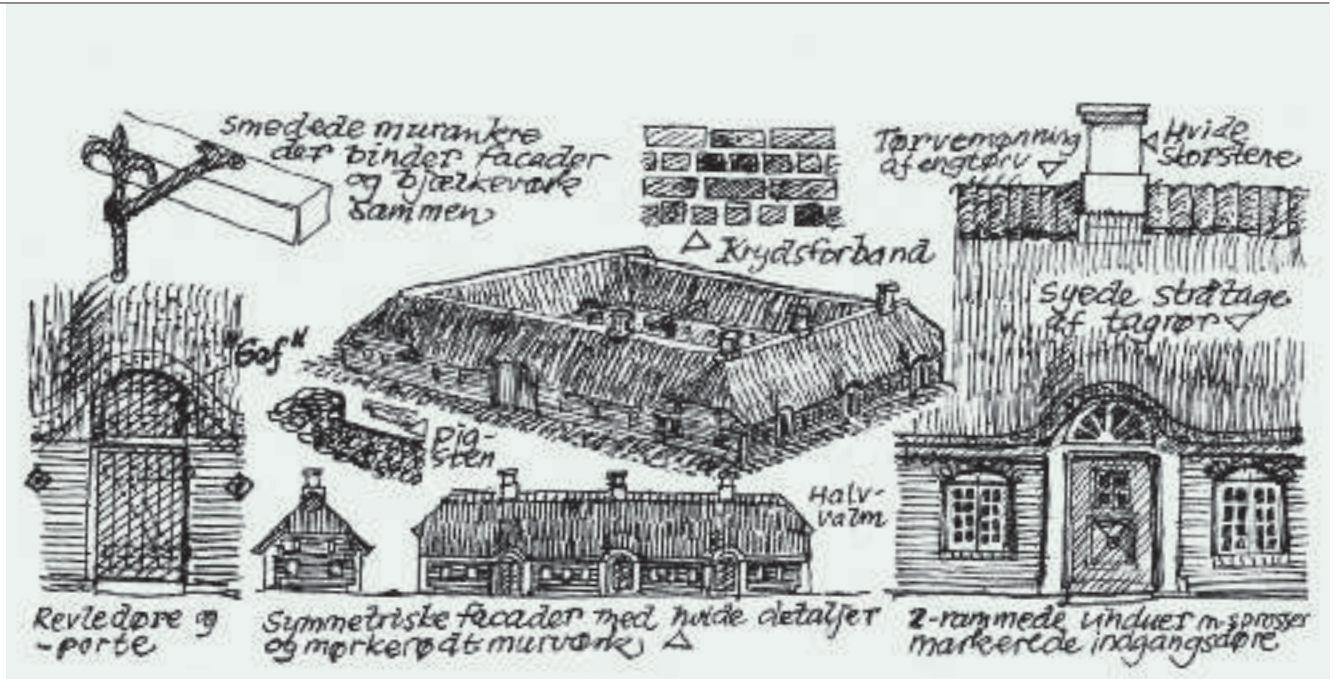 smedede murankre
der binder facader
og bjælkeværk
sammen
Krydsforband
Tørvemønning
af engtørv
Hvide
skorstene
syede stråtage
af tagrør
pig-
sten
Halv-
valm
Revledøre og
-porte
Symmetriske facader med hvide detaljer
og mørkerødt murværk
2-rammede vinduer m-sprosser
markerede indgangsdøre